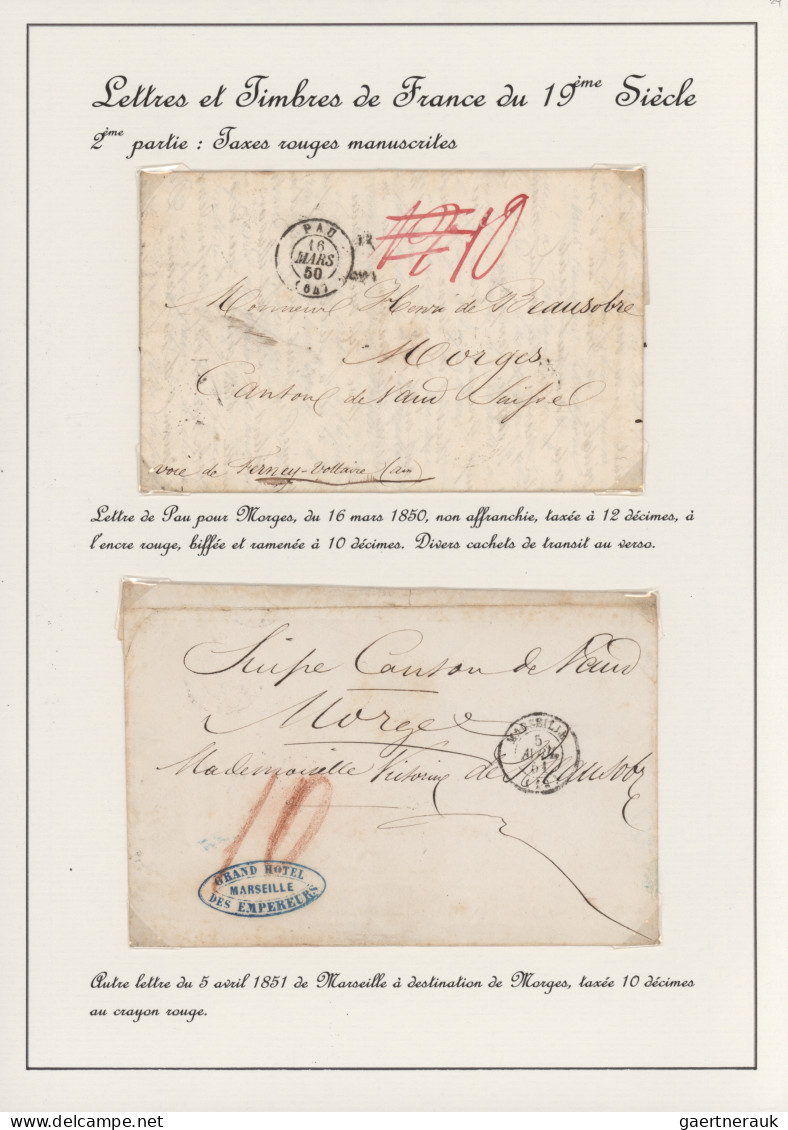 Lettres et Timbres de France du 19ème Siècle
2ème partie : Taxes rouges manuscrites
PAU
16
MARS
50
(64)
12 10
Monsieur Henri de Beausobre
Morges
Canton de Vaud Suisse
voie de Ferney-Voltaire (ain)
Lettre de Pau pour Morges, du 16 mars 1850, non affranchie, taxée à 12 décimes, à
l'encre rouge, biffée et ramenée à 10 décimes. Divers cachets de transit au verso.
Suisse Canton de Vaud
Morges
MARSEILLE
5
AVRIL
51
Mademoiselle Victorine de Beausobre
10
GRAND HOTEL
MARSEILLE
DES EMPEREURS
Autre lettre du 5 avril 1851 de Marseille à destination de Morges, taxée 10 décimes
au crayon rouge.
gaertnerauk
gaertnerauk